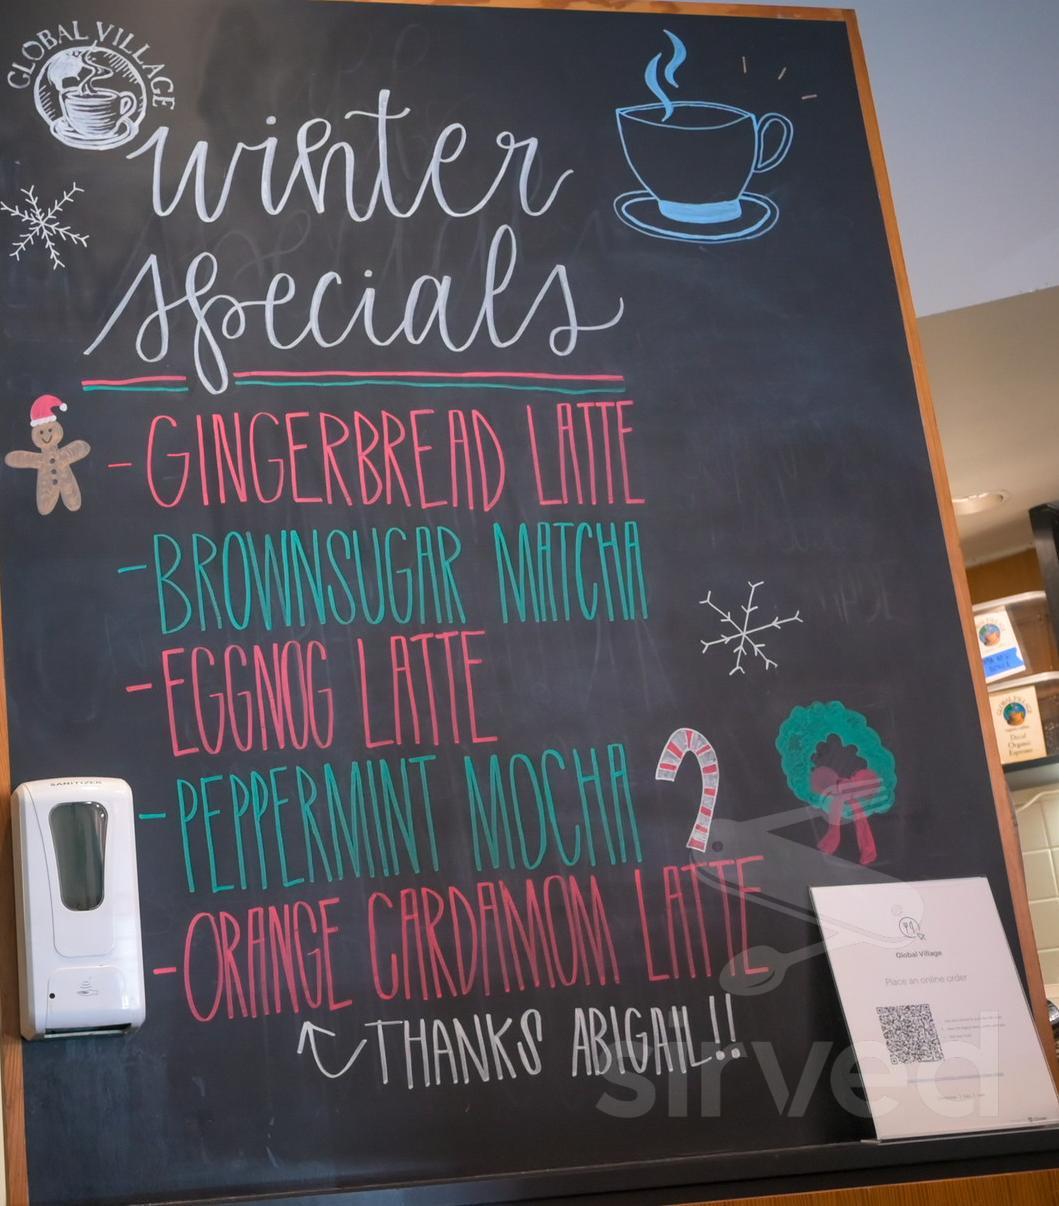 GLOBAL VILLAGE
winter
specials
- GINGERBREAD LATTE
- BROWNSUGAR MATCHA
- EGGNOG LATTE
- PEPPERMINT MOCHA
- ORANGE CARDAMOM LATTE
THANKS ABIGAIL!!
SANITIZER
Global Village
Place an online order
Decaf
Organic
Espresso
sirved